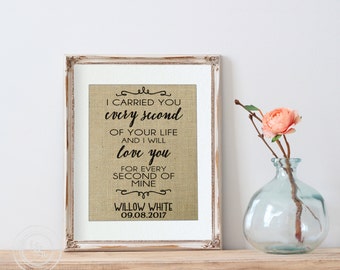 I CARRIED YOU
every second
OF YOUR LIFE
AND I WILL
love you
FOR EVERY
SECOND OF
MINE
WILLOW WHITE
09.08.2017